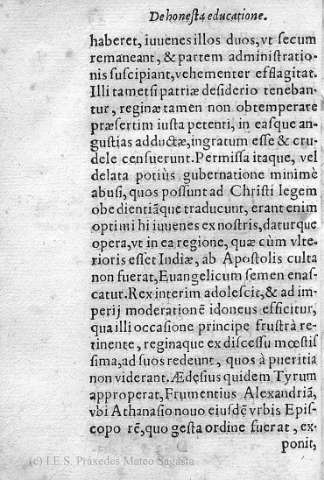 De honesta educatione.
haberet, iuuenes illos duos, vt secum
remaneant, & partem administratio-
nis suscipiant, vehementer efflagitat.
Illi tametsi patriæ desiderio teneban-
tur, reginæ tamen non obtemperate
præsertim iusta petenti, in easque an-
gustias adductæ, ingratum esse & cru-
dele censuerunt. Permissa itaque, vel
delata potiùs gubernatione minimè
abusi, quos possunt ad Christi legem
obedientiãque traducunt, erant enim
optimi hi iuuenes ex nostris, daturque
opera, vt in ea regione, quæ cùm vlte-
rioris esset Indiæ, ab Apostolis culta
non fuerat, Euangelicum semen enas-
catur. Rex interim adolescit, & ad im-
perij moderationẽ idoneus efficitur,
qua illi occasione principe frustrà re-
tinente, reginaque ex discessu mœstis
sima, ad suos redeunt, quos à pueritia
non viderant. Ædesius quidem Tyrum
approperat, Frumentius Alexandriã,
vbi Athanasio nouo eiusdẽ vrbis Epis-
copo rẽ, quo gesta ordine fuerat, ex-
ponit,
(c) I.E.S. Práxedes Mateo Sagasta